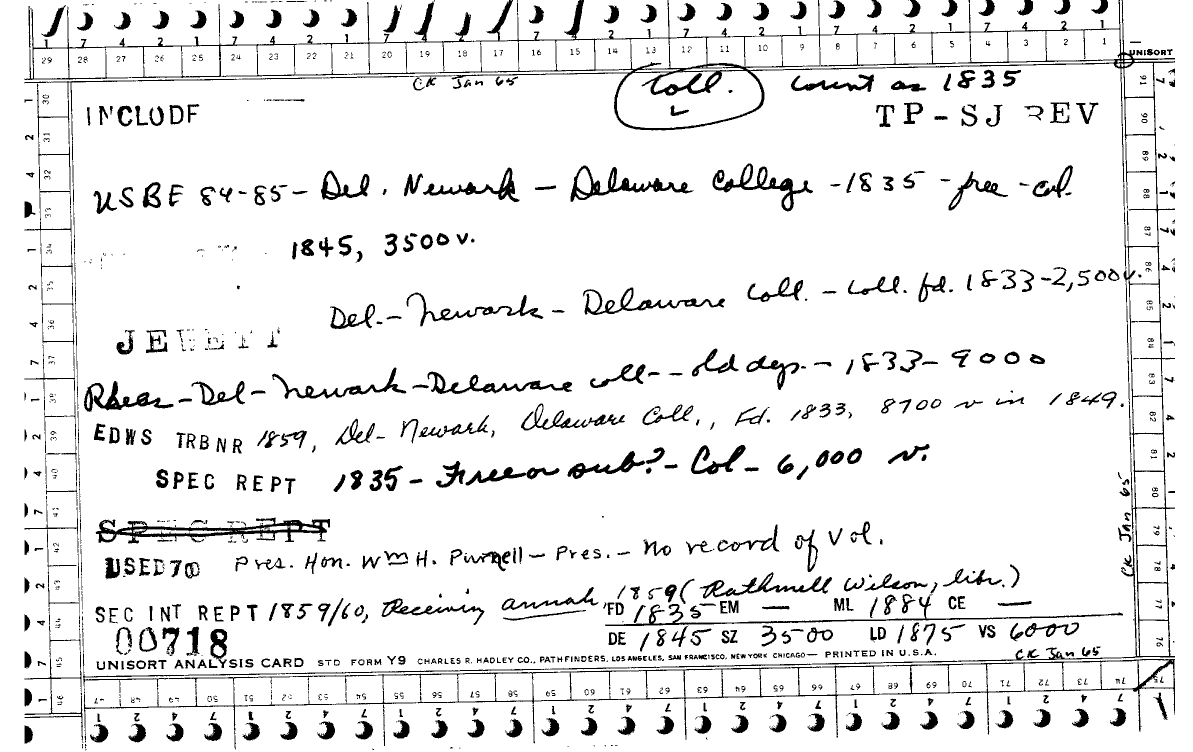 1 7 4 2 1 7 4 2 1 7 4 2 1 7 4 2 1 7 4 2 1
29 28 27 26 25 24 23 22 21 20 19 18 17 16 15 14 13 12 11 10 9 8 7 6 5 4 3 2 1 UNISORT
CK Jan 65
Coll. Count as 1835
INCLUDE TP-SJ REV
USBE 84-85 - Del. Newark - Delaware College - 1835 - free - col.
1845, 3500 v.
Del. - Newark - Delaware Coll. - Coll. fd. 1833 - 2,500 v.
JEWETT
Rhees - Del - Newark - Delaware coll - - old dep. - 1833 - 9000
EDWS TRBNR 1859, Del - Newark, Delaware Coll., Fd. 1833, 8700 v in 1849.
SPEC REPT 1835 - Free or sub? - Col - 6,000 v.
SPEC REPT
USED 70 Pres. Hon. Wm H. Purnell - Pres. - no record of vol.
SEC INT REPT 1859/60, Receiving annals, 1859 (Rathmell Wilson, libr.)
FD 1835 EM — ML 1884 CE —
00718
DE 1845 SZ 3500 LD 1875 VS 6000
UNISORT ANALYSIS CARD STD FORM Y9 CHARLES R. HADLEY CO., PATHFINDERS, LOS ANGELES, SAN FRANCISCO, NEW YORK CHICAGO — PRINTED IN U.S.A.
CK Jan 65
CK Jan 65
30 31 32 33 34 35 36 37 38 39 40 41 42 43 44 45 46
91 90 89 88 87 86 85 84 83 82 81 80 79 78 77 76
47 48 49 50 51 52 53 54 55 56 57 58 59 60 61 62 63 64 65 66 67 68 69 70 71 72 73 74 75